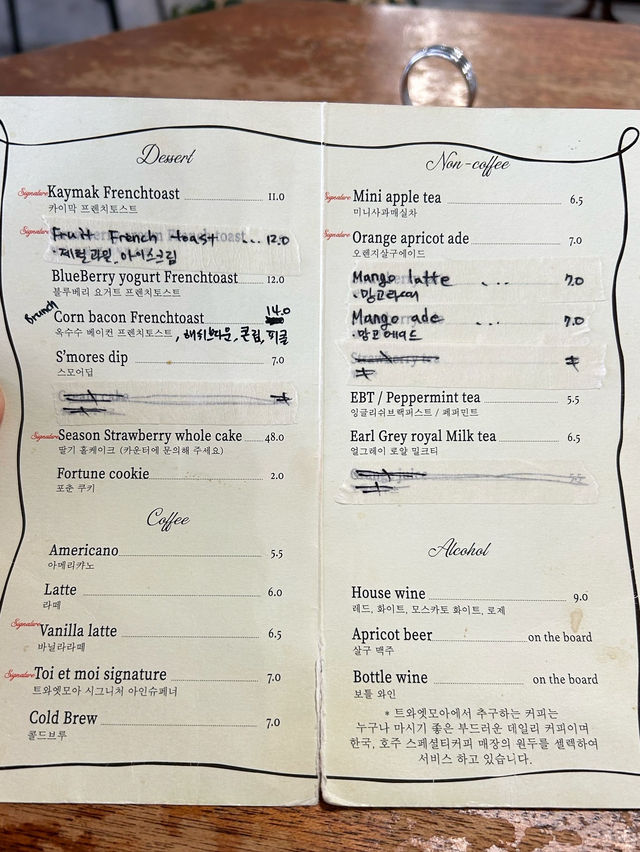 Dessert
Signature Kaymak Frenchtoast 11.0
카이막 프렌치토스트
Signature Fruit French toast ... 12.0
·제철과일, 아이스크림
BlueBerry yogurt Frenchtoast 12.0
블루베리 요거트 프렌치토스트
Brunch Corn bacon Frenchtoast 14.0
옥수수 베이컨 프렌치토스트, 해쉬브라운, 콘립, 피클
S'mores dip 7.0
스모어딥
Signature Season Strawberry whole cake 48.0
딸기 홀케이크 (카운터에 문의해 주세요)
Fortune cookie 2.0
포춘 쿠키
Coffee
Americano 5.5
아메리카노
Latte 6.0
라떼
Signature Vanilla latte 6.5
바닐라라떼
Signature Toi et moi signature 7.0
트와엣모아 시그니처 아인슈페너
Cold Brew 7.0
콜드브루
Non-coffee
Signature Mini apple tea 6.5
미니사과매실차
Signature Orange apricot ade 7.0
오렌지살구에이드
Mango latte ... 7.0
·망고라떼
Mango ade ... 7.0
·망고에이드
EBT / Peppermint tea 5.5
잉글리쉬브랙퍼스트 / 페퍼민트
Earl Grey royal Milk tea 6.5
얼그레이 로얄 밀크티
Alcohol
House wine 9.0
레드, 화이트, 모스카토 화이트, 로제
Apricot beer on the board
살구 맥주
Bottle wine on the board
보틀 와인
* 트와엣모아에서 추구하는 커피는
누구나 마시기 좋은 부드러운 데일리 커피이며
한국, 호주 스페셜티커피 매장의 원두를 셀렉하여
서비스 하고 있습니다.